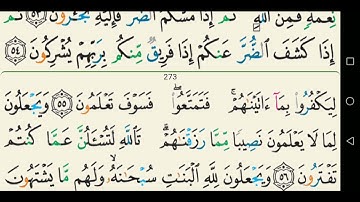 نِّعْمَةٍ فَمِنَ ٱللَّهِ ثُمَّ إِذَا مَسَّكُمُ ٱلضُّرُّ فَإِلَيْهِ تَجْـَٔرُونَ ٥٣ ثُمَّ
إِذَا كَشَفَ ٱلضُّرَّ عَنكُمْ إِذَا فَرِيقٌ مِّنكُم بِرَبِّهِمْ يُشْرِكُونَ ٥٤
273
لِيَكْفُرُوا۟ بِمَآ ءَاتَيْنَٰهُمْ ۚ فَتَمَتَّعُوا۟ ۖ فَسَوْفَ تَعْلَمُونَ ٥٥ وَيَجْعَلُونَ
لِمَا لَا يَعْلَمُونَ نَصِيبًا مِّمَّا رَزَقْنَٰهُمْ ۗ تَٱللَّهِ لَتُسْـَٔلُنَّ عَمَّا كُنتُمْ
تَفْتَرُونَ ٥٦ وَيَجْعَلُونَ لِلَّهِ ٱلْبَنَٰتِ سُبْحَٰنَهُۥ ۙ وَلَهُم مَّا يَشْتَهُونَ